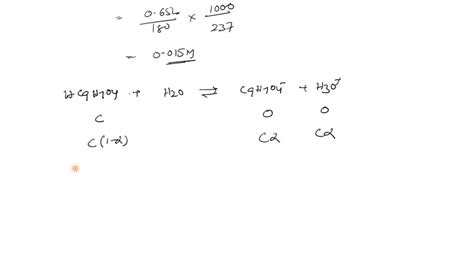 = 0.652/180 × 1000/237
= 0.015M
HC9H7O4 + H2O ⇌ C9H7O4⁻ + H3O⁺
C 0 0
C(1-α) Cα Cα